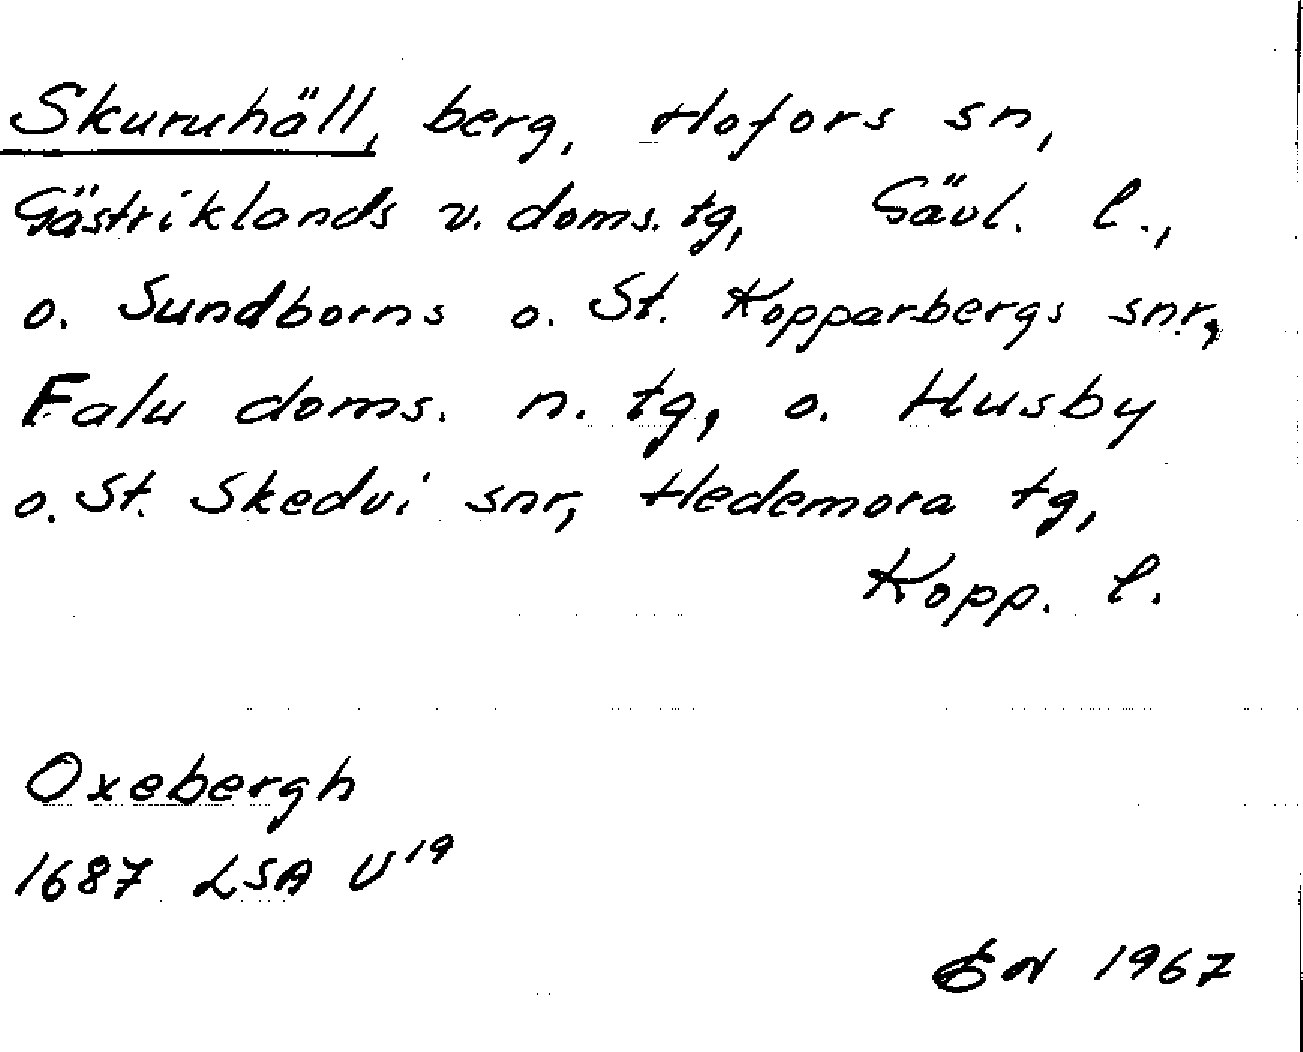 Skuruhäll, berg, Hofors sn,
Gästriklands v. doms. tg, Gävl. l.,
o. Sundborns o. St. Kopparbergs snr,
Falu doms. n. tg, o. Husby
o. St. Skedvi snr, Hedemora tg,
Kopp. l.
Oxebergh
1687 LSA U19
1967